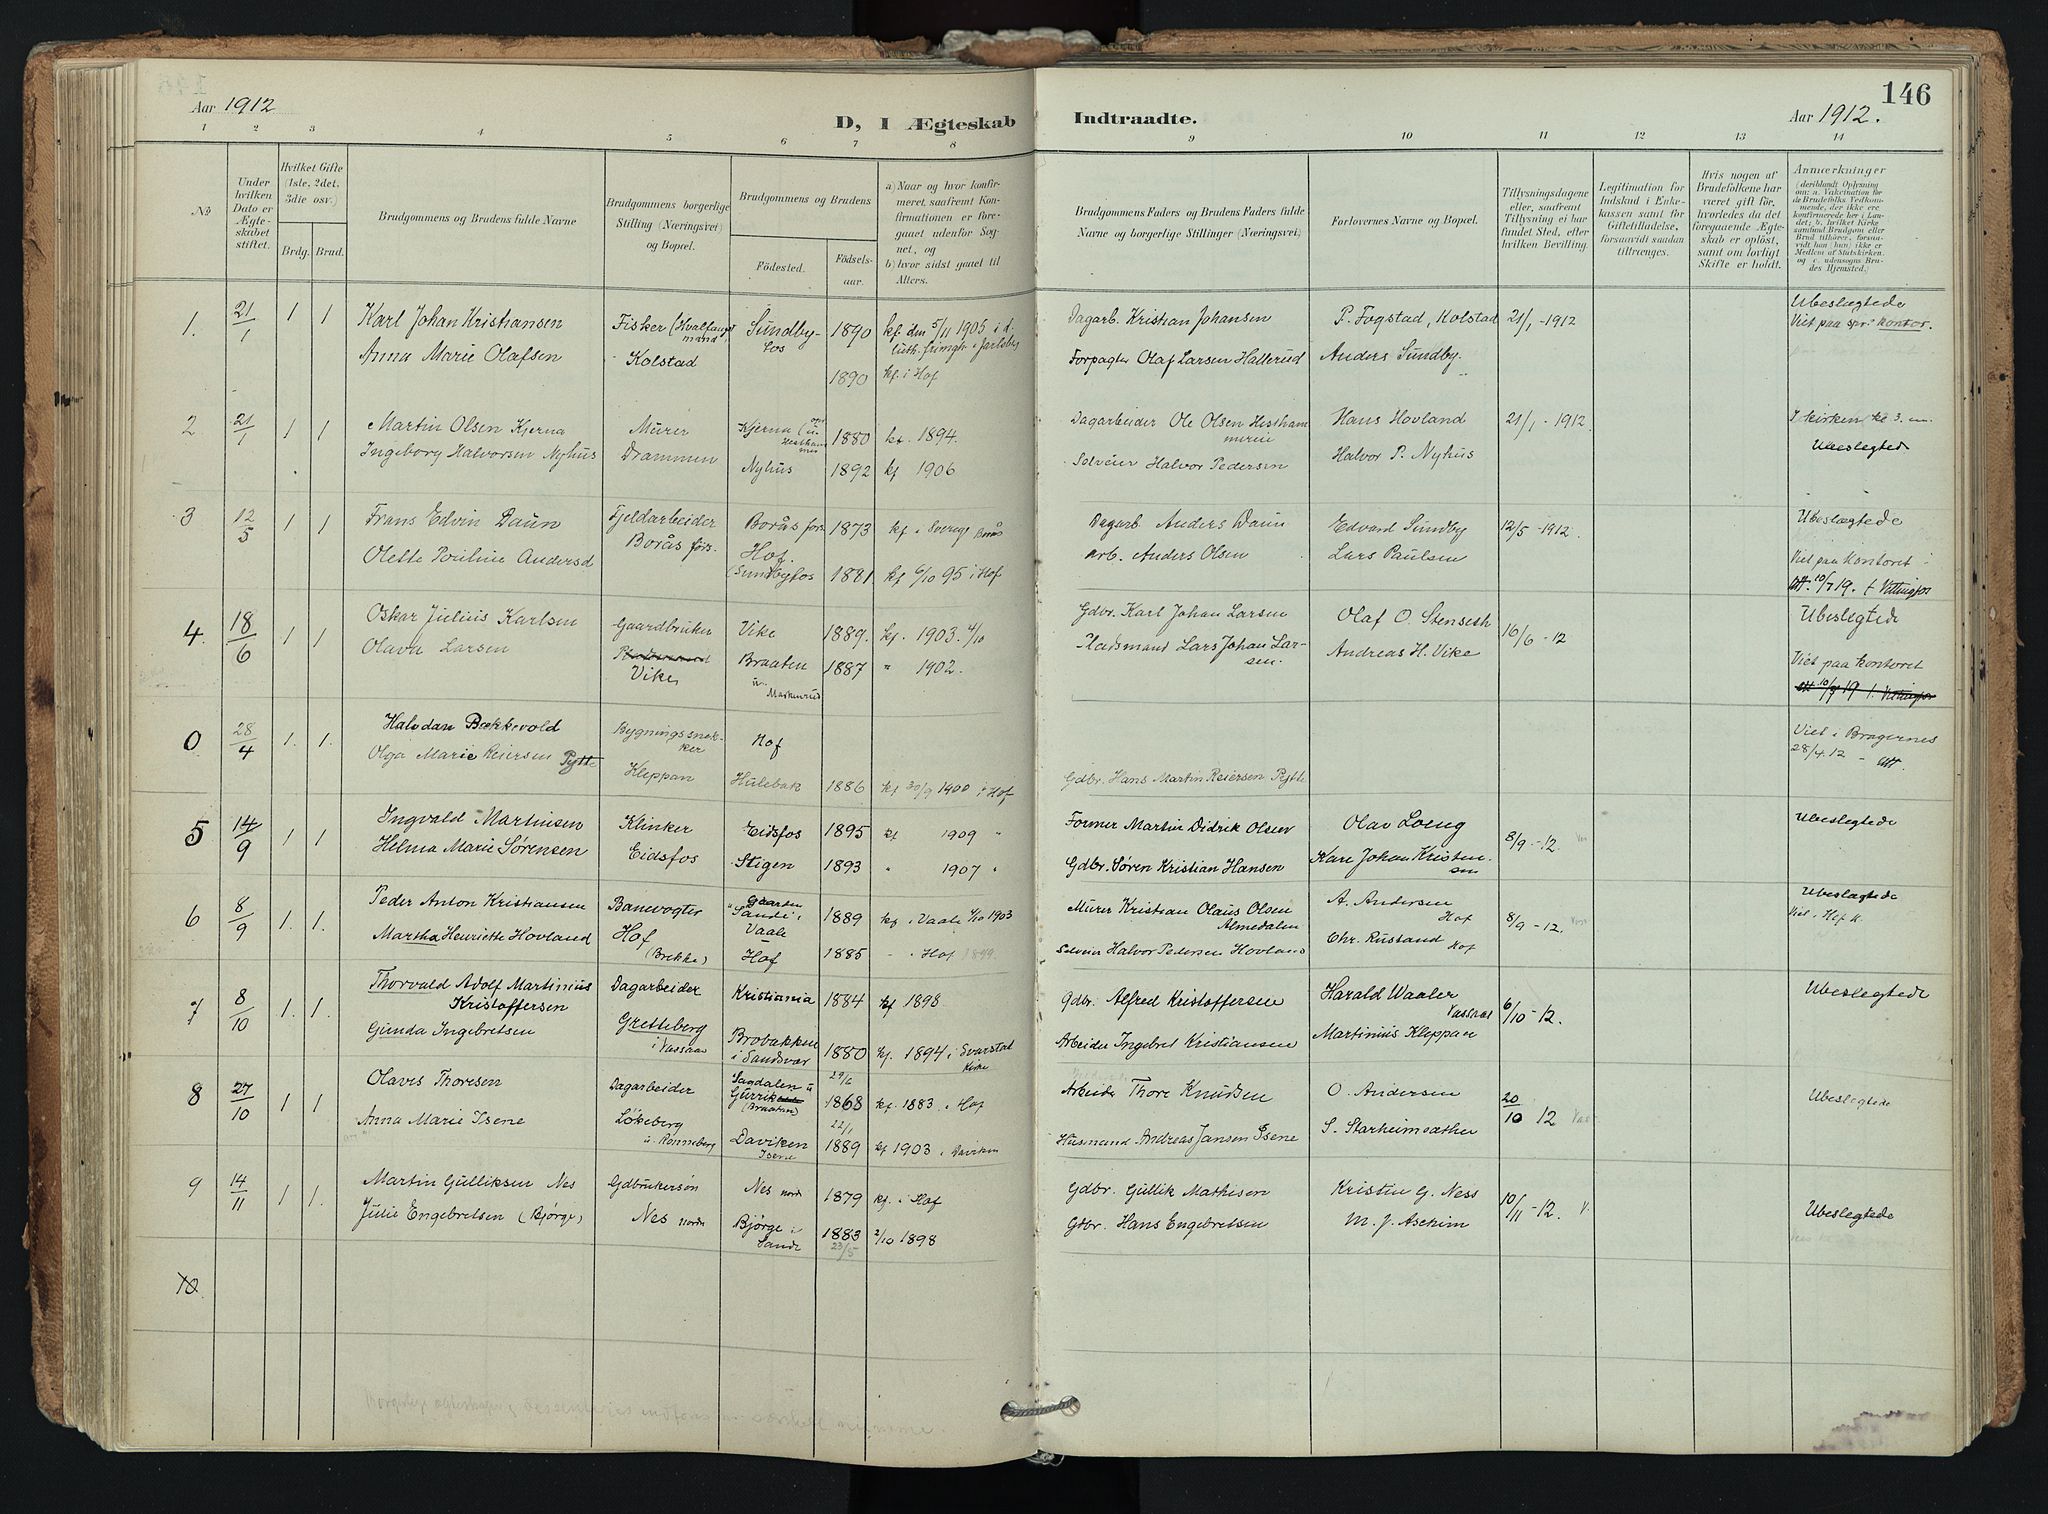 146
Aar 1912
D, I Ægteskab Indtraadte.
Aar 1912.
1 2 3 4 5 6 7 8 9 10 11 12 13 14
No
Under hvilken Dato er Ægteskabet stiftet.
Hvilket Gifte (1ste, 2det, 3die osv.)
Brdg. Brud.
Brudgommens og Brudens fulde Navne
Brudgommens borgerlige Stilling (Næringsvei) og Bopæl.
Brudgommens og Brudens
Fødested.
Fødselsaar.
a) Naar og hvor konfirmeret, saafremt Konfirmationen er foregaaet udenfor Sognet, og b) hvor sidst gaaet til Alters.
Brudgommens Faders og Brudens Faders fulde Navne og borgerlige Stillinger (Næringsvei)
Forlovernes Navne og Bopæl.
Tillysningsdagene eller, saafremt Tillysning ei har fundet Sted, efter hvilken Bevilling.
Legitimation for Indskud i Enkekassen samt for Giftetilladelse, forsaavidt saadan tiltrænges.
Hvis nogen af Brudefolkene har været gift før, hvorledes da det foregaaende Ægteskab er opløst, samt om lovligt Skifte er holdt.
Anmærkninger (deriblandt Oplysning om: a. Vakcination for de Brudefolks Vedkommende, der ikke ere konfirmerede her i Landet; b. hvilket Kirkesamfund Brudgom eller Brud tilhører, forsaavidt han (hun) ikke er Medlem af Statskirken, og c. udensogns Brudes Hjemsted.)
1. 21/1 1 1 Karl Johan Kristiansen Fisker (Hvalfangstmand) Sundbyfos 1890 kf. den 5/11 1905 i d. luth. frimgh. i Jarlsberg
Dagarb. Kristian Johansen P. Fogstad, Kolstad 21/1-1912 Ubeslægtede
Viet paa spr. kontor.
Anna Marie Olafsen Kolstad 1890 kf. i Hof
Forpagter Olaf Larsen Hallerud Anders Sundby.
2 21/1 1 1 Martin Olsen Kjerna Murer Kjerna 1880 kf. 1894.
Dagarbeider Ole Olsen Hesthammereie Hans Hovland 21/1-1912 I kirken kl 3. em.
Ubeslegtede
Ingeborg Halvorsen Nyhus Drammen Nyhus 1892 kf 1906
Selveier Halvor Pedersen Halvor P. Nyhus
3 12/5 1 1 Frans Edvin Daun Fjeldarbeider Borås førs 1873 kf i Sverige Borås
Dagarb. Anders Daun Edvard Sundby 12/5-1912 Ubeslægtede
Olette Pauline Andersd Borås førs. Hof (Sundbyfos 1881 kf 6/10 95 i Hof
Arb. Anders Olsen Lars Paulsen Viet paa Kontoret
Att. 10/7 19. f Vittingfos
4. 18/6 1 1 Oskar Julius Karlsen Gaardbruker Vike 1889. kf. 1903. 4/10
Gdbr. Karl Johan Larsen Olaf O. Stensesh 16/6-12 Ubeslegtede
Olava Larsen Vike Braaten u. Markerud 1887 " 1902.
Pladsmand Lars Johan Larsen. Andreas H. Vike Viet paa kontoret
Att 10/7 19 f. Vittingfos
0 28/4 1. 1. Halvdan Bekkevold Bygningssnekker Hof
Viet i Bragernes 28/4.12 - Att.
Olga Marie Reiersen Pytte Kleppan Hulebak 1886 kf 30/9 1900 i Hof
Gdbr. Hans Martin Reiersen Pytte
5 14/9 1 1 Ingvald Martinsen Klinker Eidsfos 1895 kf 1909 "
Former Martin Didrik Olsen Olav Loeng 8/9-12. Ubeslegtede
Helma Marie Sørensen Eidsfos Stigen 1893 " 1907 "
Gdbr. Søren Kristian Hansen Karl Johan Kristensen
6 8/9 1. 1. Peder Anton Kristiansen Banevogter Sande i Vaale 1889 kf i Vaale 4/10 1903
Murer Kristian Olaus Olsen Almedalen A. Andersen Hof 8/9-12. Ubeslegtede
Viet i Hof K.
Martha Henriette Hovland Hof (Brekke) Hof 1885 - " Hof 1899.
Selveier Halvor Pedersen Hovland Chr. Rustand Hof
7 8/10 1. 1. Thorvald Adolf Martinius Kristoffersen Dagarbeider Kristiania 1884 kf 1898
Gdbr. Alfred Kristoffersen Harald Waaler Vassaas 6/10-12. Ubeslegtede
Gunda Ingebretsen Gretteberg i Vassaas Brobakken i Sandsvær 1880 kf. 1894 i Svarstad Kirke
Arbeider Ingebret Kristiansen Martinius Kleppan
8 27/10 1 1 Olaves Thoresen Dagarbeider Sagdalen u Gurrik (Braaten) 29/6 1868 kf. 1883. i Hof
Arbeider Thore Knudsen O. Andersen 20/10 12 Ubeslegtede
Anna Marie Isene Løkeberg u. Ronneberg Daviken Isene 22/1 1889 kf 1903 i Daviken
Husmand Andreas Jansen Isene S. Starheimsæther
9 14/11 1 1. Martin Gulliksen Nes Gdbrukersøn Nes nordr 1879 kf. i Hof
Gdbr. Gullik Mathisen Kristin G. Ness 10/11-12. V. Ubeslegtede
Julie Engebretsen (Bjørge) Nes nordr Bjørge i Sande 1883 23/5 2/10 1898
Gdbr. Hans Engebretsen M. J. Asckim
10.